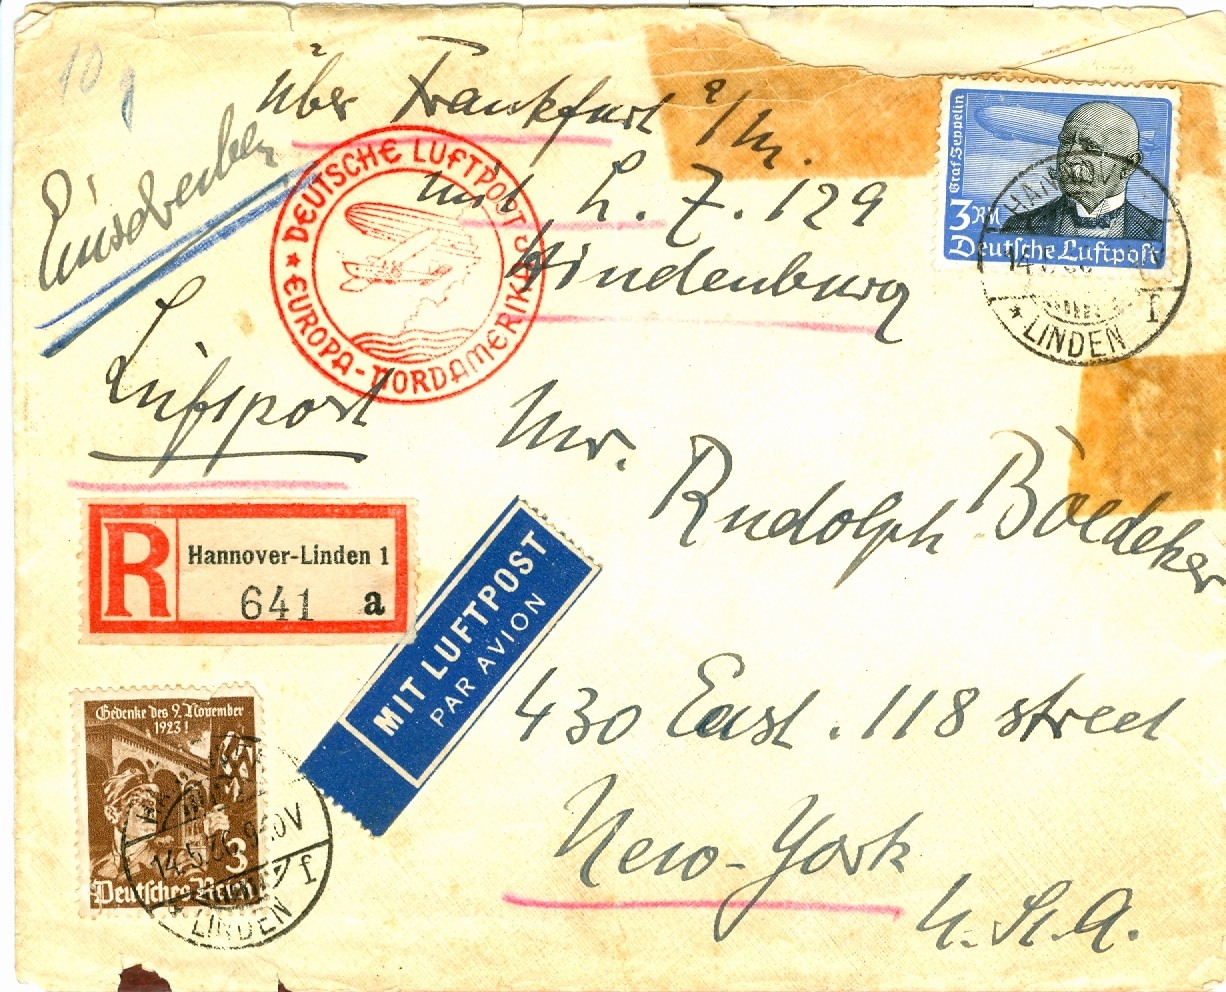 10 g
Einschreiben
über Frankfurt a/M.
mit L. Z. 129
Hindenburg
Luftpost
★ DEUTSCHE LUFTPOST
EUROPA-NORDAMERIKA
Graf Zeppelin
3 RM
Deutsche Luftpost
HANNOVER
14.5.36
f
* LINDEN
Mr. Rudolph Böedeker
R
Hannover-Linden 1
641 a
MIT LUFTPOST
PAR AVION
430 East. 118 street
New-York
U.S.A.
Gedenke des 9. November
1923!
3
Deutsches Reich
14.5.36
V
f
LINDEN